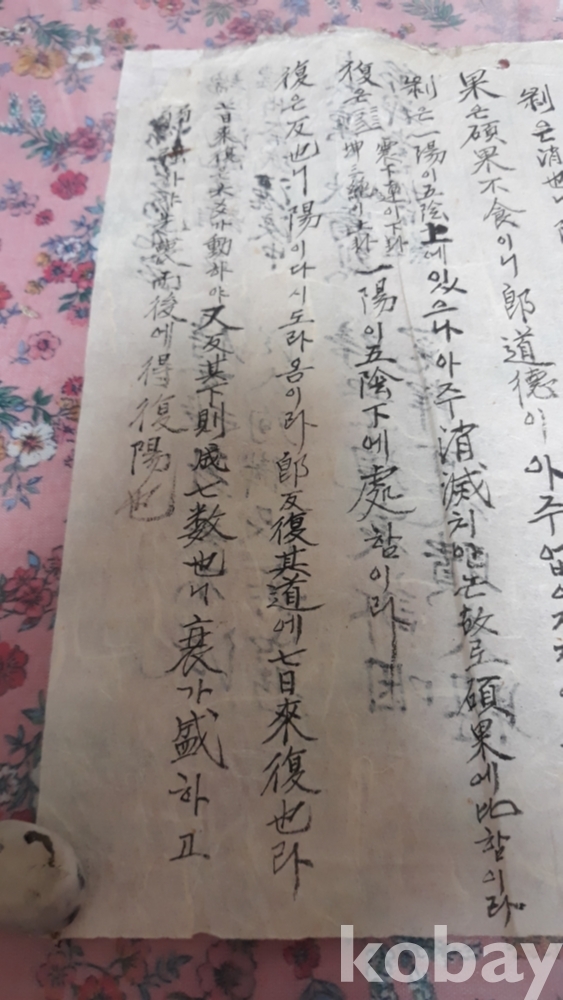 剝은 消也니
果는 碩果不食이니 郎道德이 아주 업어지
剝은 一陽이 五陰上에 있으나 아주 消滅치 안는 故로 碩果에 比함이라
復은 一陽이 五陰下에 處함이라
復은 反也니 陽이 다시 도라옴이라 郎反復其道에 七日來復也라
動하야 又反其下則 成七数也니 衰가 盛하고
後에 得復陽也
kobay